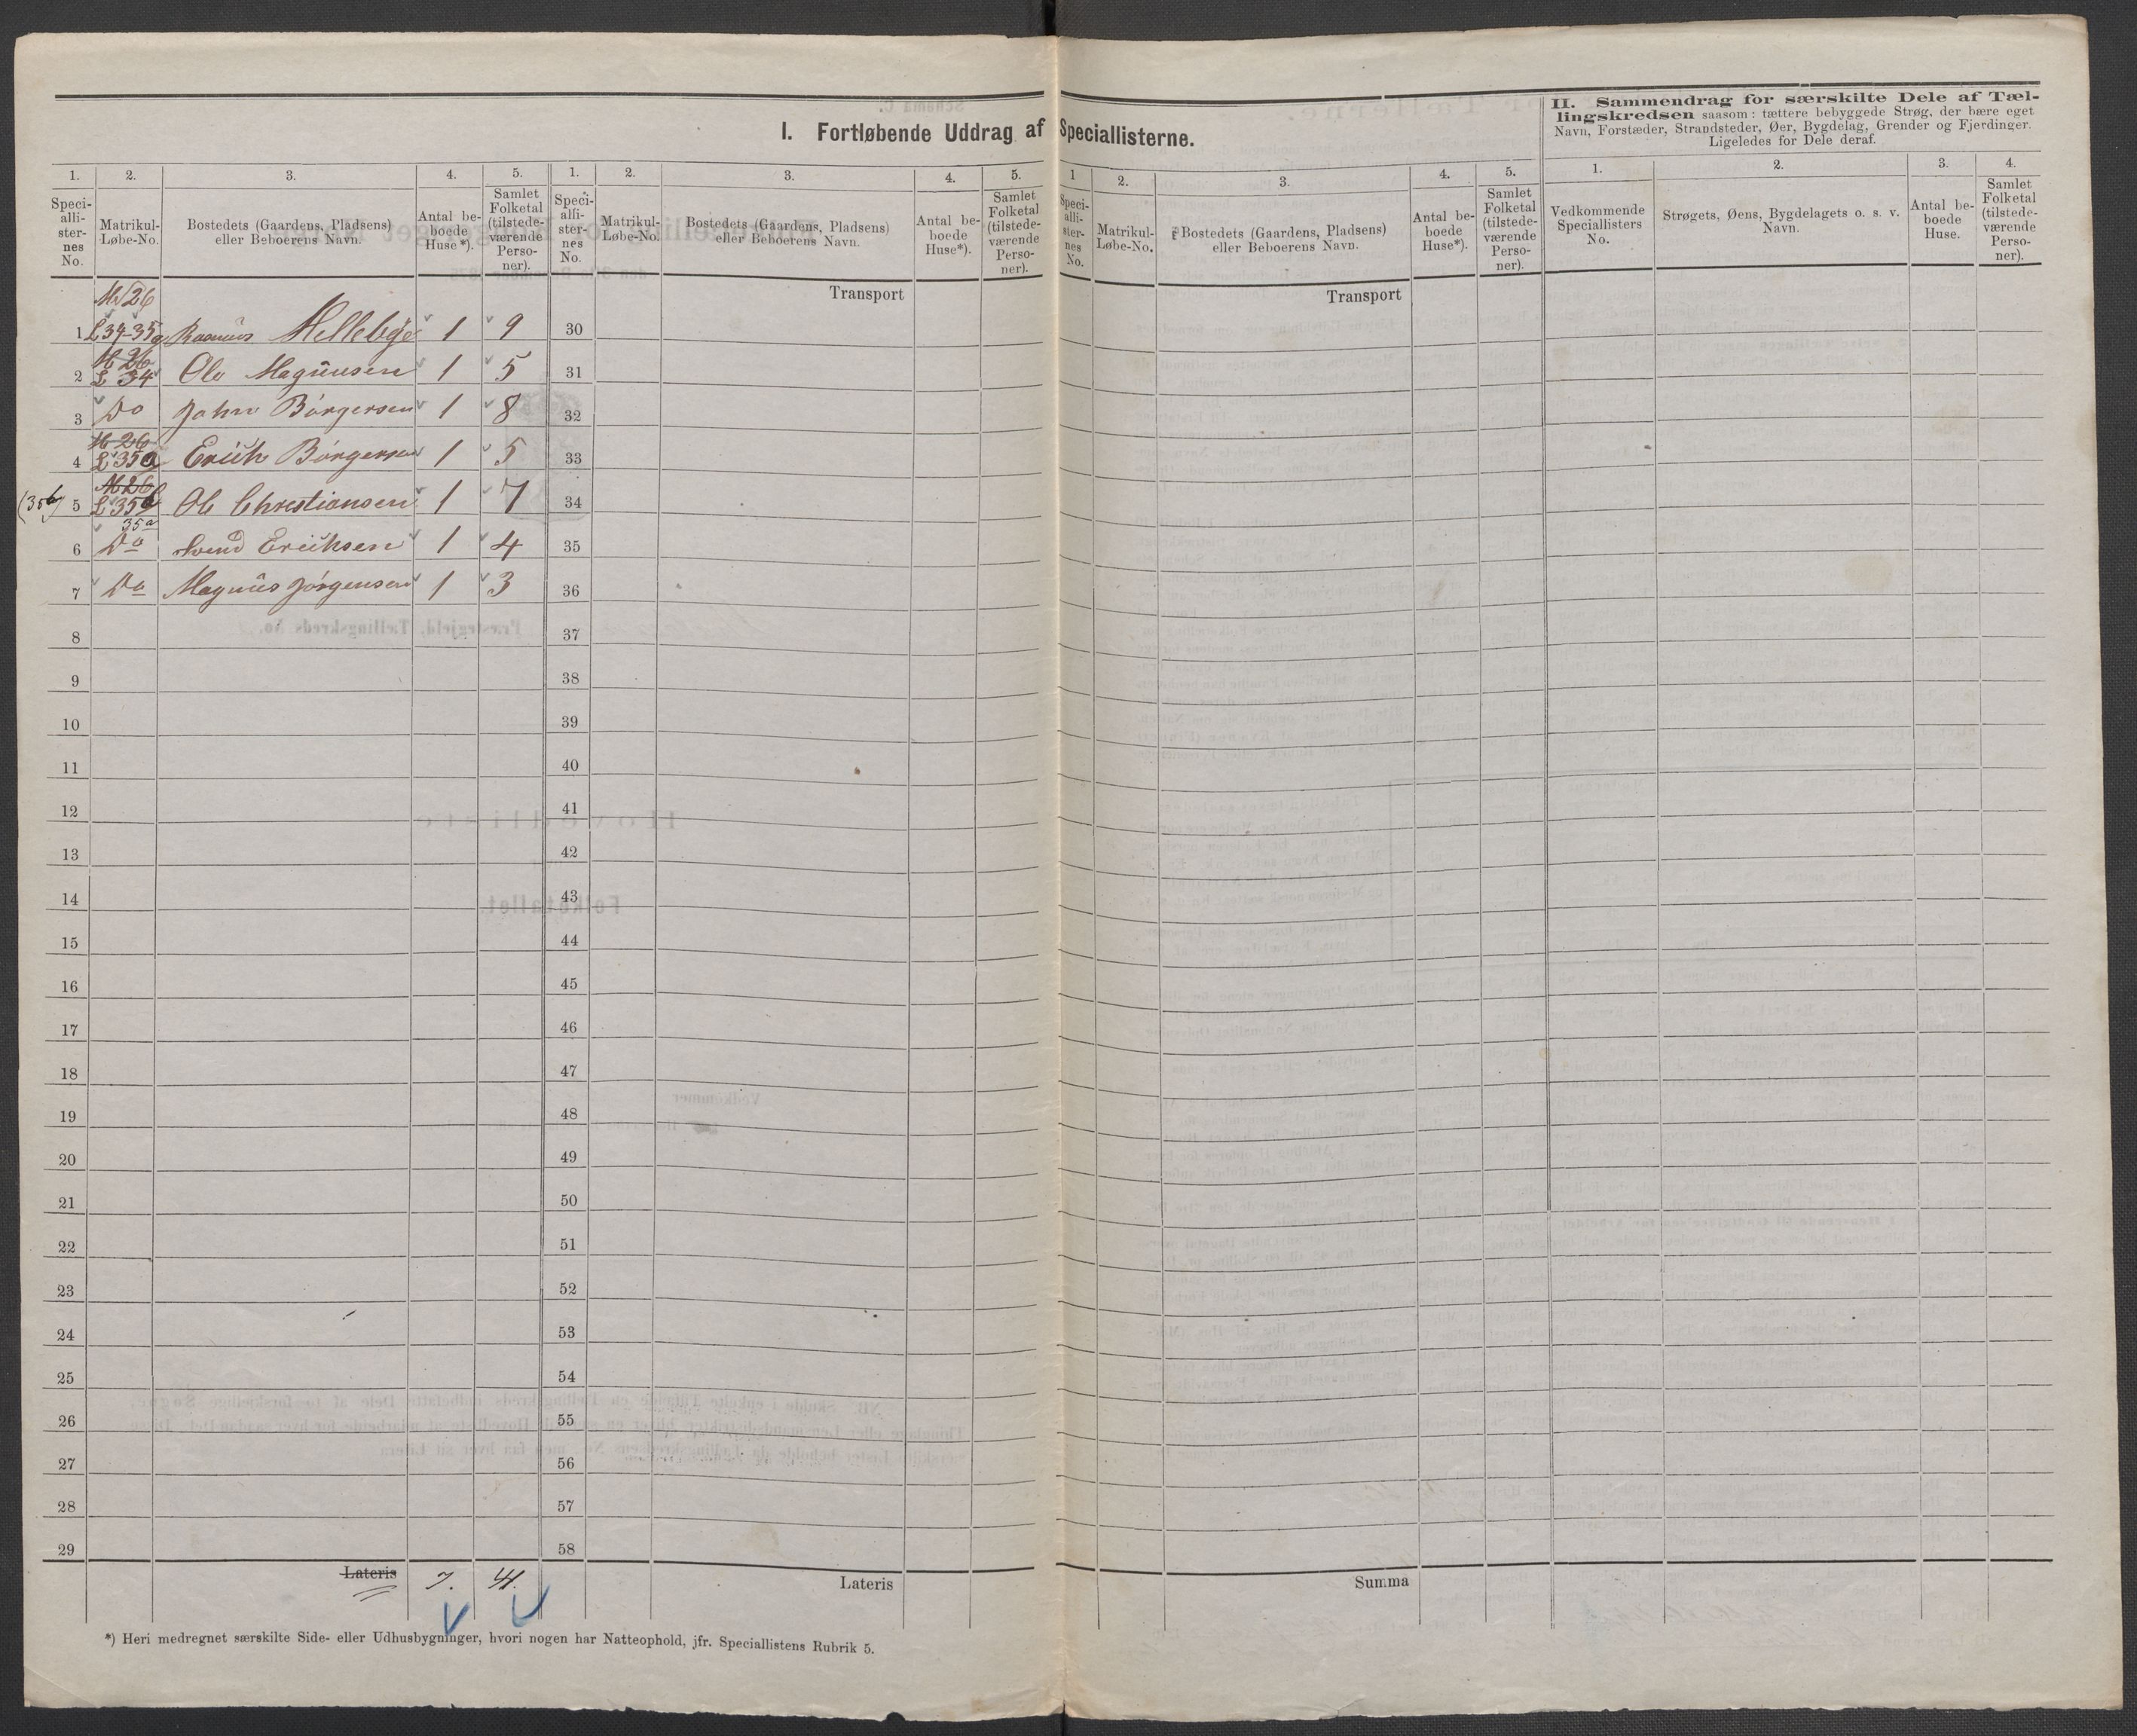 I. Fortløbende Uddrag af Speciallisterne.
1. 2. 3. 4. 5.
Speci-alli-ster-nes No. Matrikul-Løbe-No. Bostedets (Gaardens, Pladsens) eller Beboerens Navn. Antal be-boede Huse*). Samlet Folketal (tilstede-værende Perso-ner).
M 26
1 L 34-35a Rasmus Hellebge 1 9
M 26
2 L 34 Ole Magnusen 1 5
3 Do John Börgersen 1 8
M 26
4 L 35a Erich Börgersen 1 5
M 26
(35b) 5 L 35b Ole Christiansen 1 7
35a
6 Do Svend Eriksen 1 4
7 Do Magnus Jörgensen 1 3
8
9
10
11
12
13
14
15
16
17
18
19
20
21
22
23
24
25
26
27
28
29
Lateris 7. 41.
*) Heri medregnet særskilte Side- eller Udhusbygninger, hvori nogen har Natteophold, jfr. Speciallistens Rubrik 5.
1. 2. 3. 4. 5.
Speci-alli-ster-nes No. Matrikul-Løbe-No. Bostedets (Gaardens, Pladsens) eller Beboerens Navn. Antal be-boede Huse*). Samlet Folketal (tilstede-værende Perso-ner).
Transport
30
31
32
33
34
35
36
37
38
39
40
41
42
43
44
45
46
47
48
49
50
51
52
53
54
55
56
57
58
Lateris
1 2. 3. 4. 5.
Speci-alli-ster-nes No. Matrikul-Løbe-No. Bostedets (Gaardens, Pladsens) eller Beboerens Navn. Antal be-boede Huse*). Samlet Folketal (tilstede-værende Perso-ner).
Transport
Summa
II. Sammendrag for særskilte Dele af Tæl-
lingskredsen saasom: tættere bebyggede Strøg, der bære eget
Navn, Forstæder, Strandsteder, Øer, Bygdelag, Grender og Fjerdinger.
Ligeledes for Dele deraf.
1. 2. 3. 4.
Vedkommende Speciallisters No. Strøgets, Øens, Bygdelagets o. s. v. Navn. Antal be-boede Huse. Samlet Folketal (tilstede-værende Perso-ner).